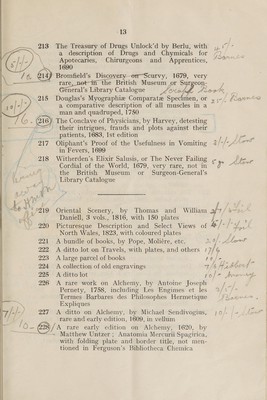 13
213 The Treasury of Drugs Unlock'd by Berlu, with
a description of Drugs and Chymicals for
Apotecaries, Chirurgeons and Apprentices,
1690
214 Bromfield's Discovery on Scurvy, 1679, very
rare, not in the British Museum or Surgeon-
General's Library Catalogue
215 Douglas's Myographiæ Comparatæ Specimen, or
a comparative description of all muscles in a
man and quadruped, 1750
216 The Conclave of Physicians, by Harvey, detesting
their intrigues, frauds and plots against their
patients, 1683, 1st edition
217 Oliphant's Proof of the Usefulness in Vomiting
in Fevers, 1699
218 Witherden's Elixir Salusis, or The Never Failing
Cordial of the World, 1679, very rare, not in
the British Museum or Surgeon-General's
Library Catalogue
219 Oriental Scenery, by Thomas and William
Daniell, 3 vols., 1816, with 150 plates
220 Picturesque Description and Select Views of
North Wales, 1823, with coloured plates
221 A bundle of books, by Pope, Molière, etc.
222 A ditto lot on Travels, with plates, and others
223 A large parcel of books
224 A collection of old engravings
225 A ditto lot
226 A rare work on Alchemy, by Antoine Joseph
Pernety, 1758, including Les Engimes et les
Termes Barbares des Philosophes Hermetique
Expliques
227 A ditto on Alchemy, by Michael Sendivogius,
rare and early edition, 1609, in vellum
228 A rare early edition on Alchemy, 1620, by
Matthew Untzer; Anatomia Mercurii Spagirica,
with folding plate and border title, not men-
tioned in Ferguson's Bibliotheca Chemica